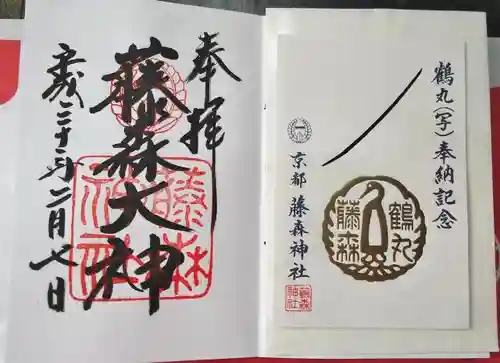 鶴丸(写)奉納記念
鶴丸
藤森
京都 藤森神社
藤森
神社
奉拝
藤森大神
藤森
神社
平成三十年二月七日